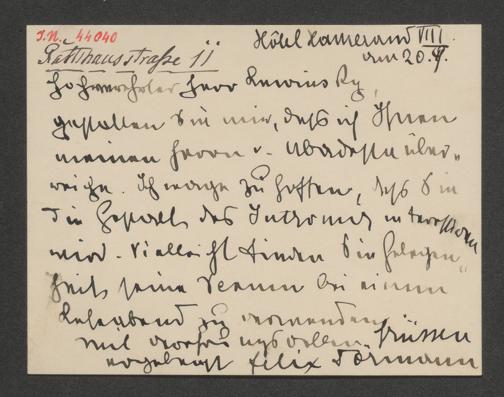 I.N. 44040
Rathhausstraße 11
Hôtel Hammerand VIII.
am 20. 4.
Hochverehrter Herr Lewinsky,
gestatten Sie mir, daß ich Ihnen
meinen Herrn v. Abadessa über-
reiche. Ich wage zu hoffen, daß Sie
die Gestalt des interessieren
wird. Vielleicht finden Sie Gelegen-
heit, seine Scenen bei einem
Leseabend zu verwenden.
Mit Grüssen
ergebenst Felix Dörmann